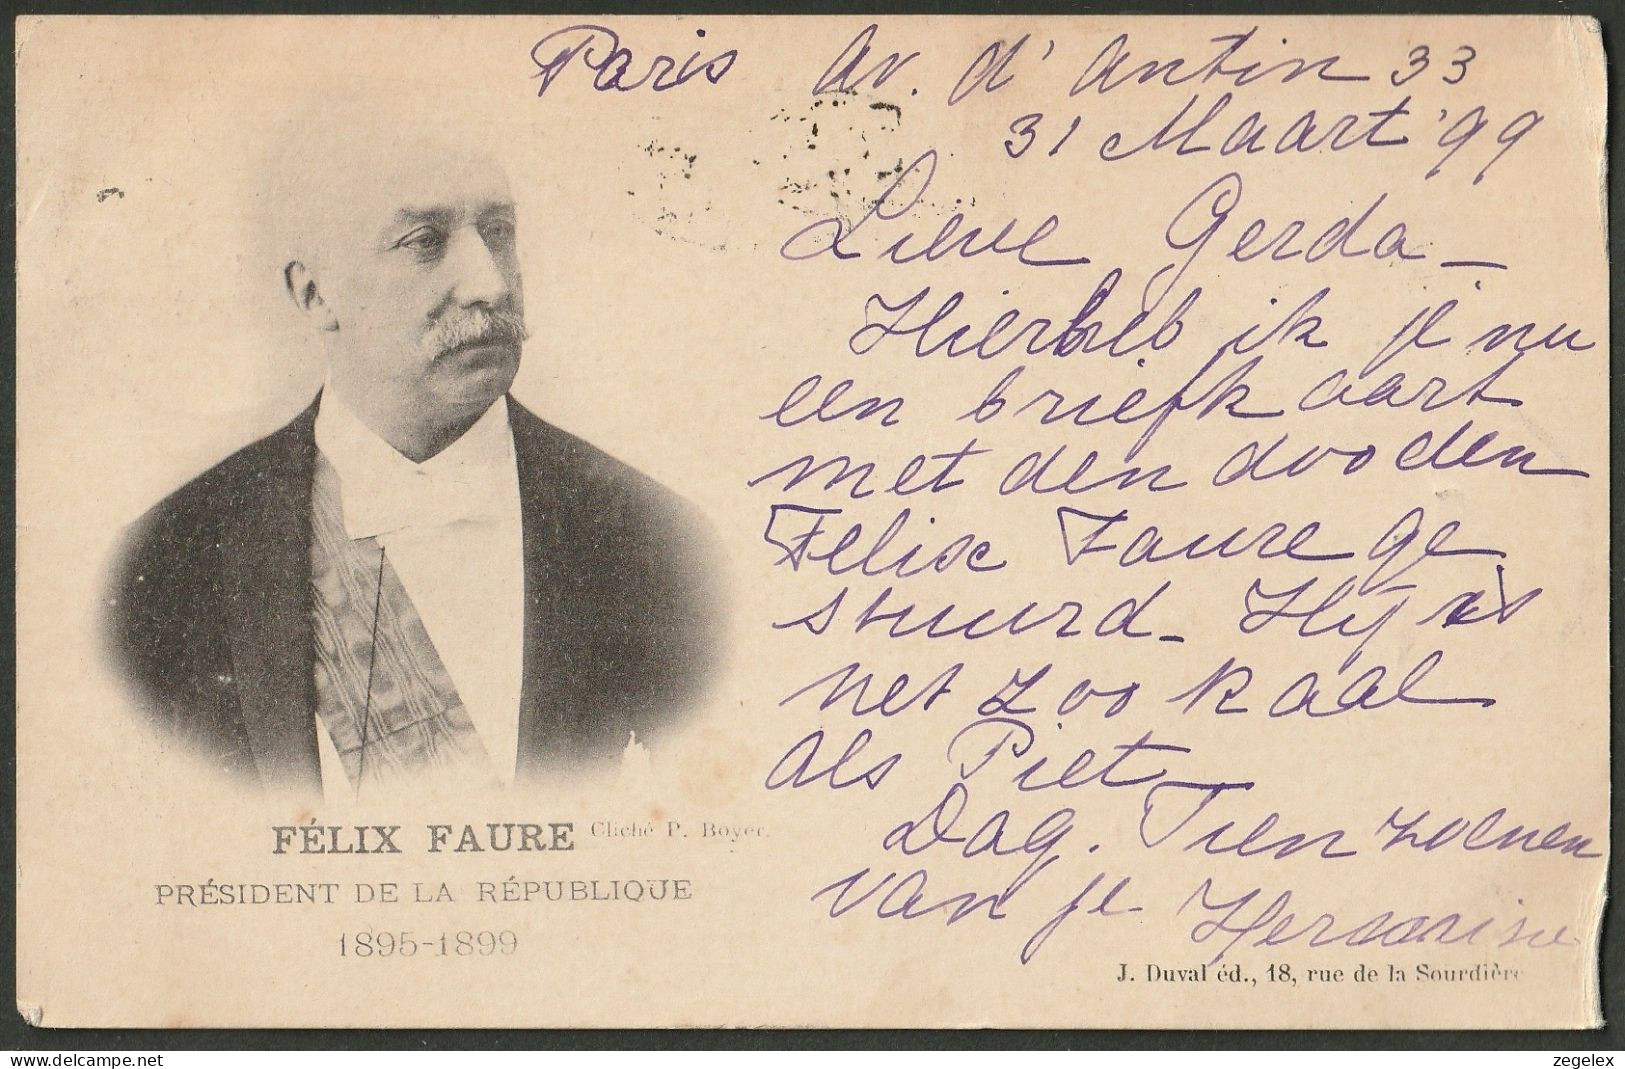 Paris av. d'antin 33
31 Maart '99
Lieve Gerda_
Hier heb ik je nu
een briefkaart
met den dooden
Felix Faure ge
stuurd_ Hij is
net zoo kaal
als Piet_
Dag. Tien zoenen
van je Hermine
FÉLIX FAURE Cliché P. Boyer.
PRÉSIDENT DE LA RÉPUBLIQUE
1895-1899
J. Duval éd., 18, rue de la Sourdière
zegelex